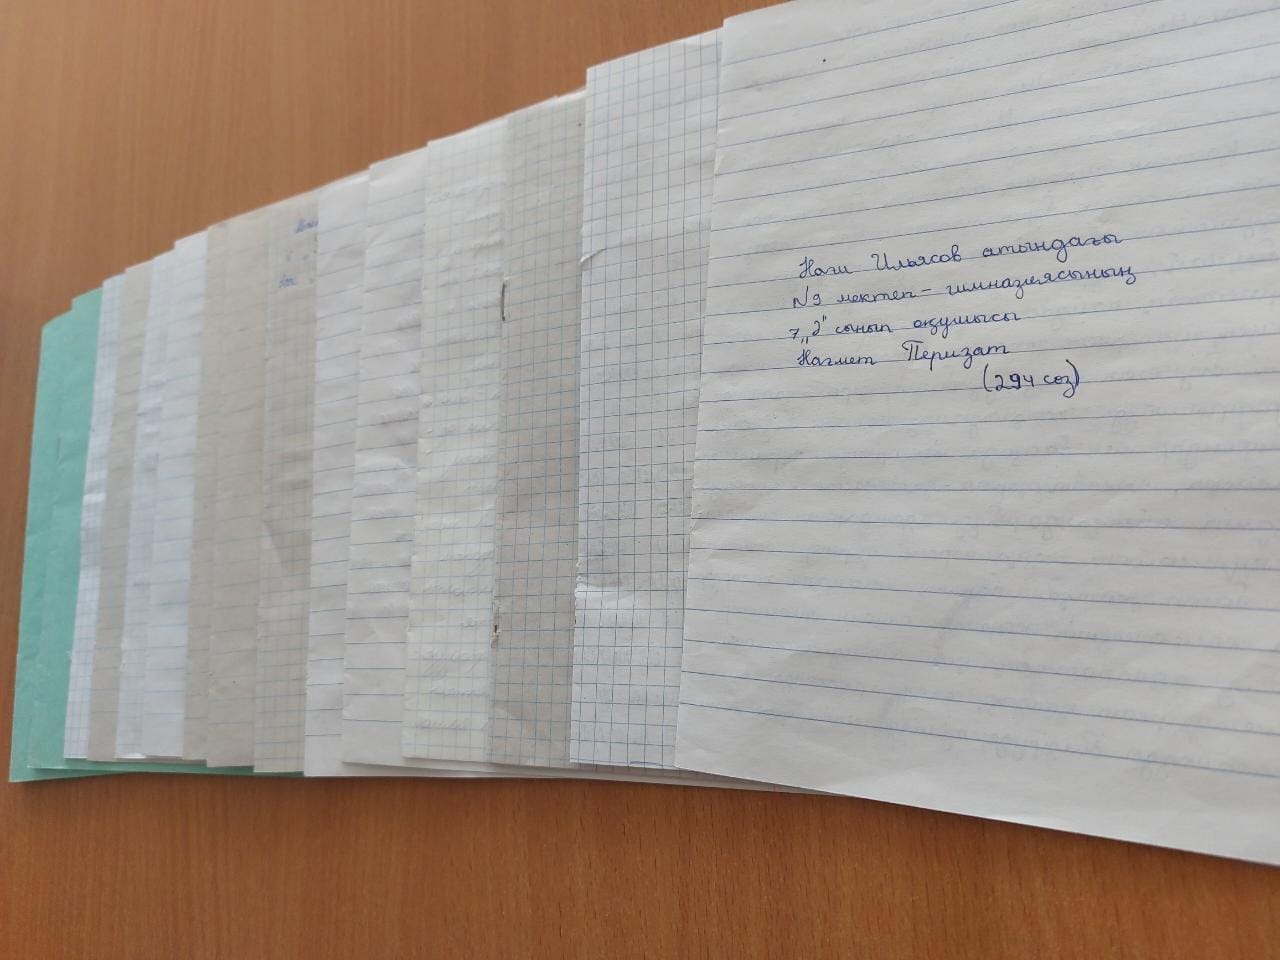 Наги Ильясов атындағы
№9 мектеп-гимназиясының
7 „Ә" сынып оқушысы
Нағмет Перизат
(294 сөз)